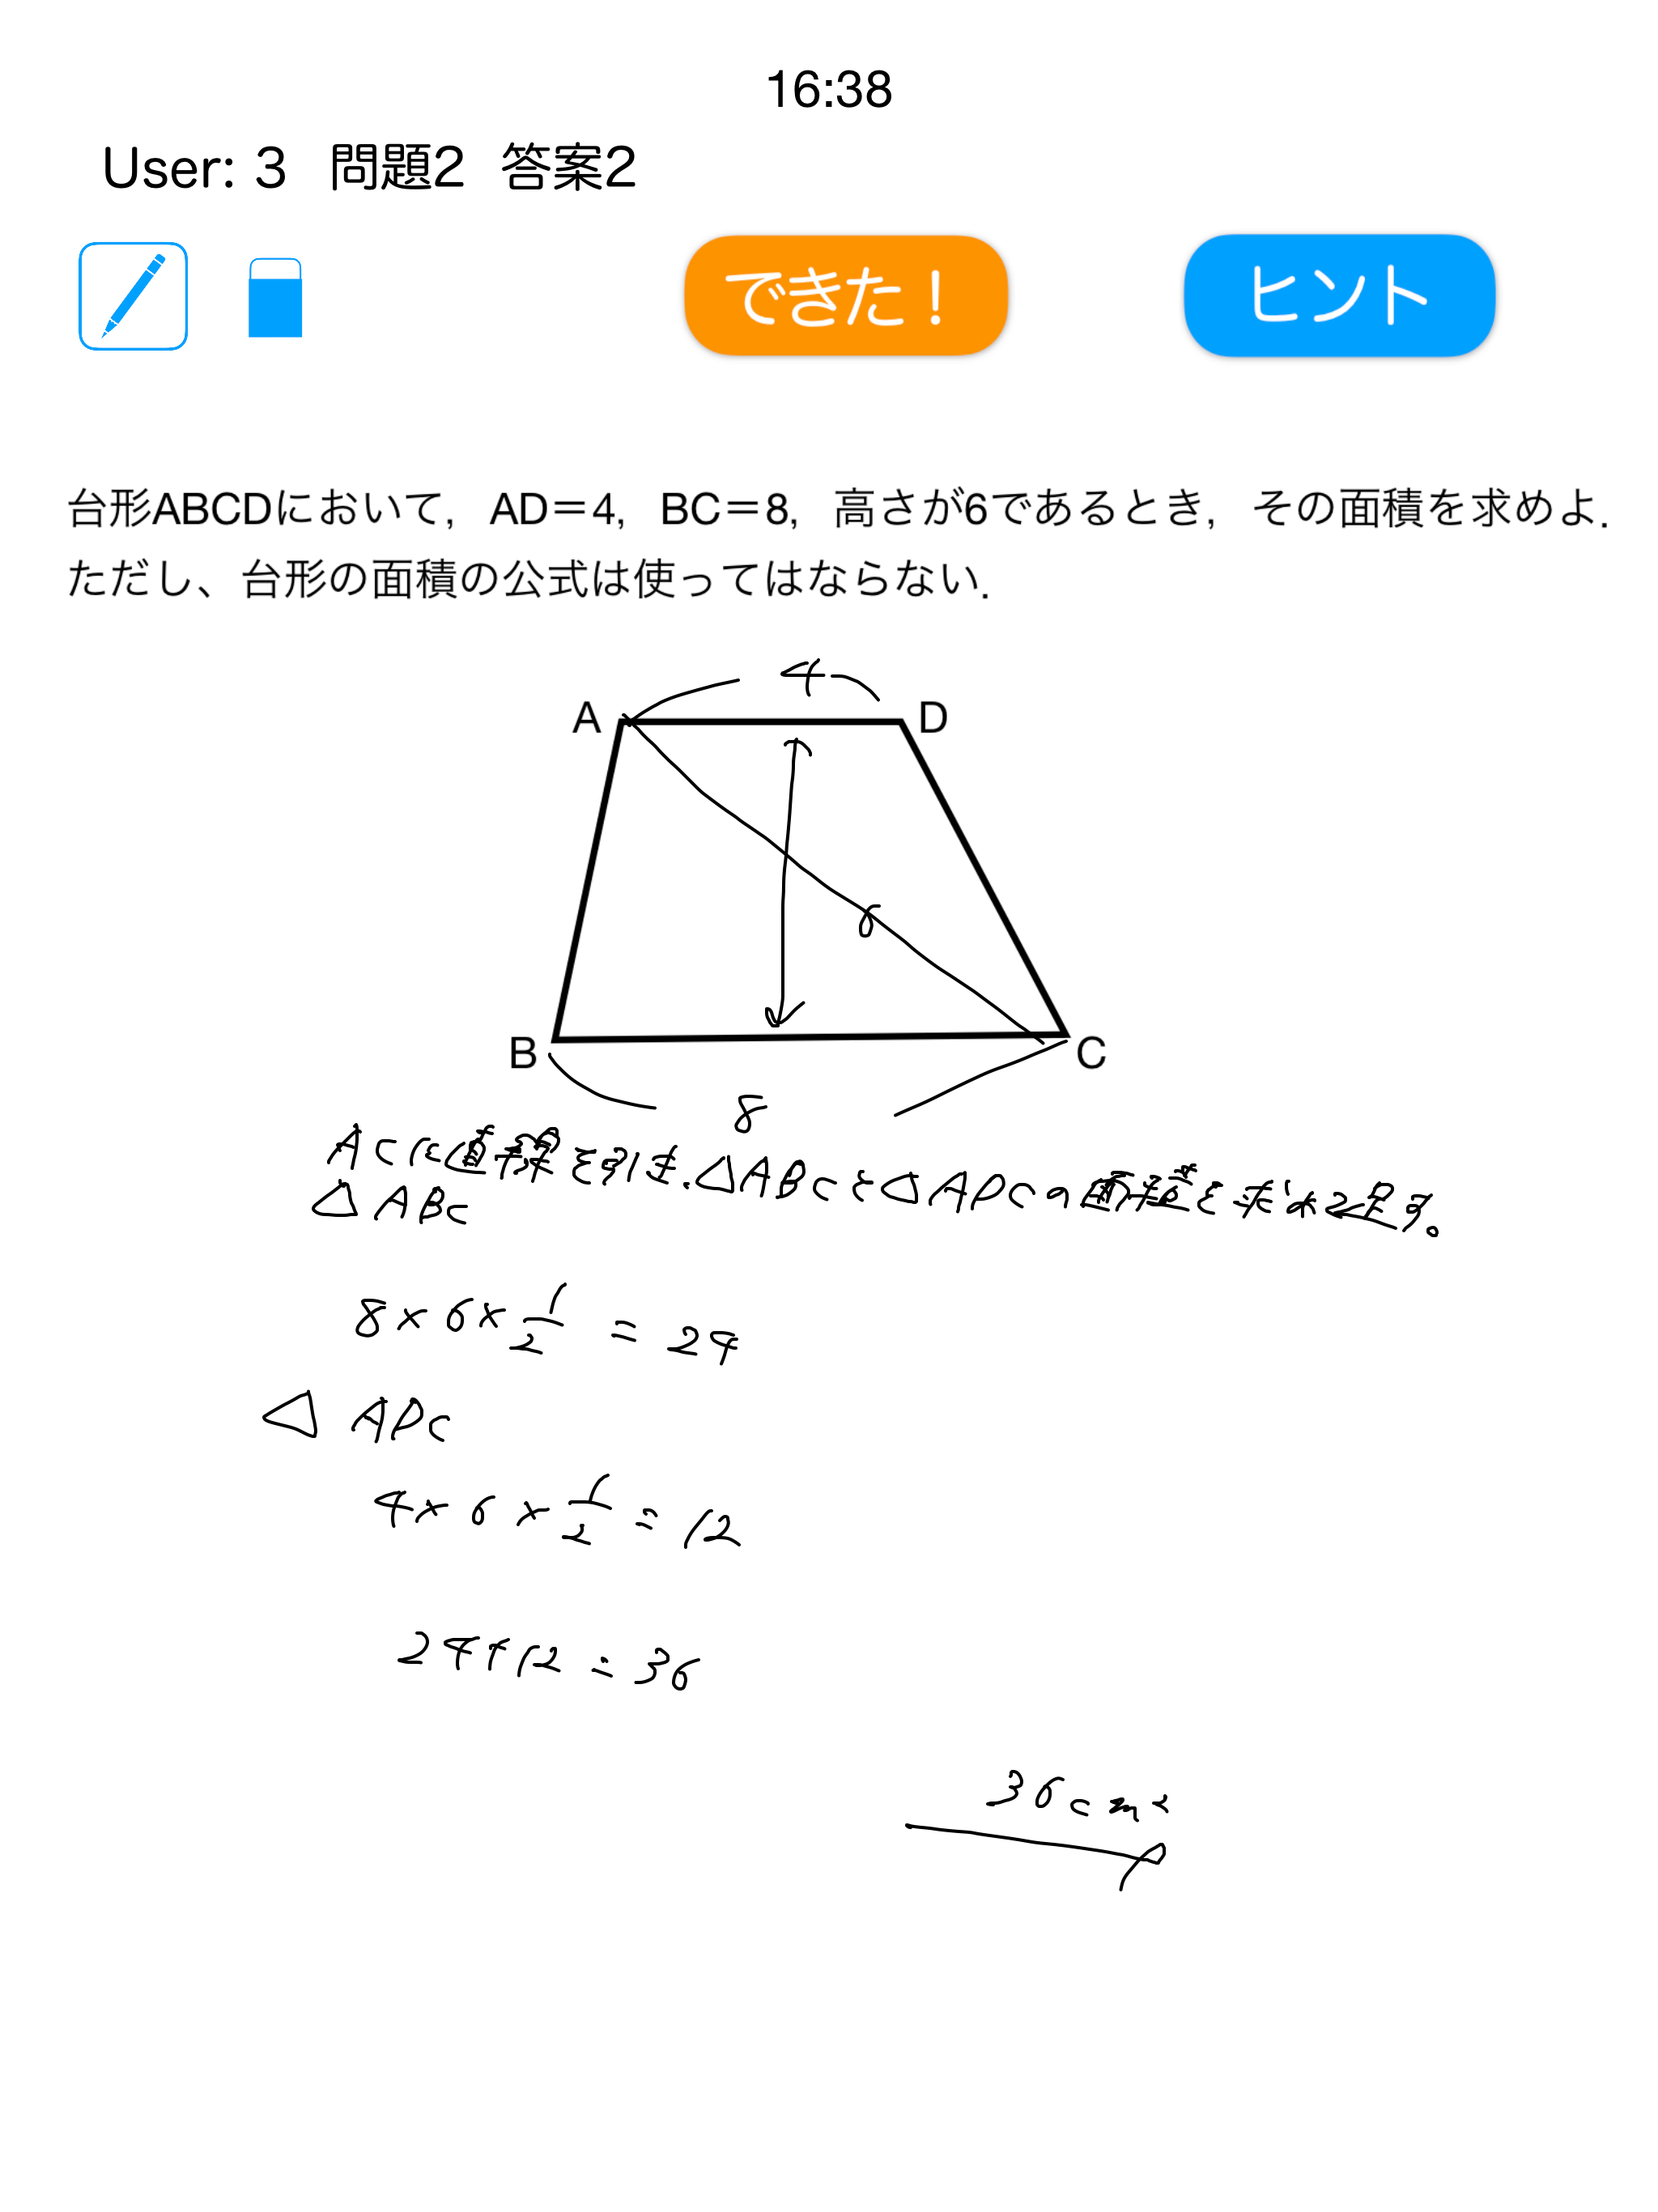 16:38
User: 3 問題2 答案2
できた！ ヒント
台形ABCDにおいて，AD＝4，BC＝8，高さが6であるとき，その面積を求めよ．
ただし、台形の面積の公式は使ってはならない．
4
A D
6
B C
8
ACに直線を引き、△ABCと△ADCの面積を求め足す。
△ABC
8×6×1/2 = 24
△ADC
4×6×1/2 = 12
24+12=36
36cm²